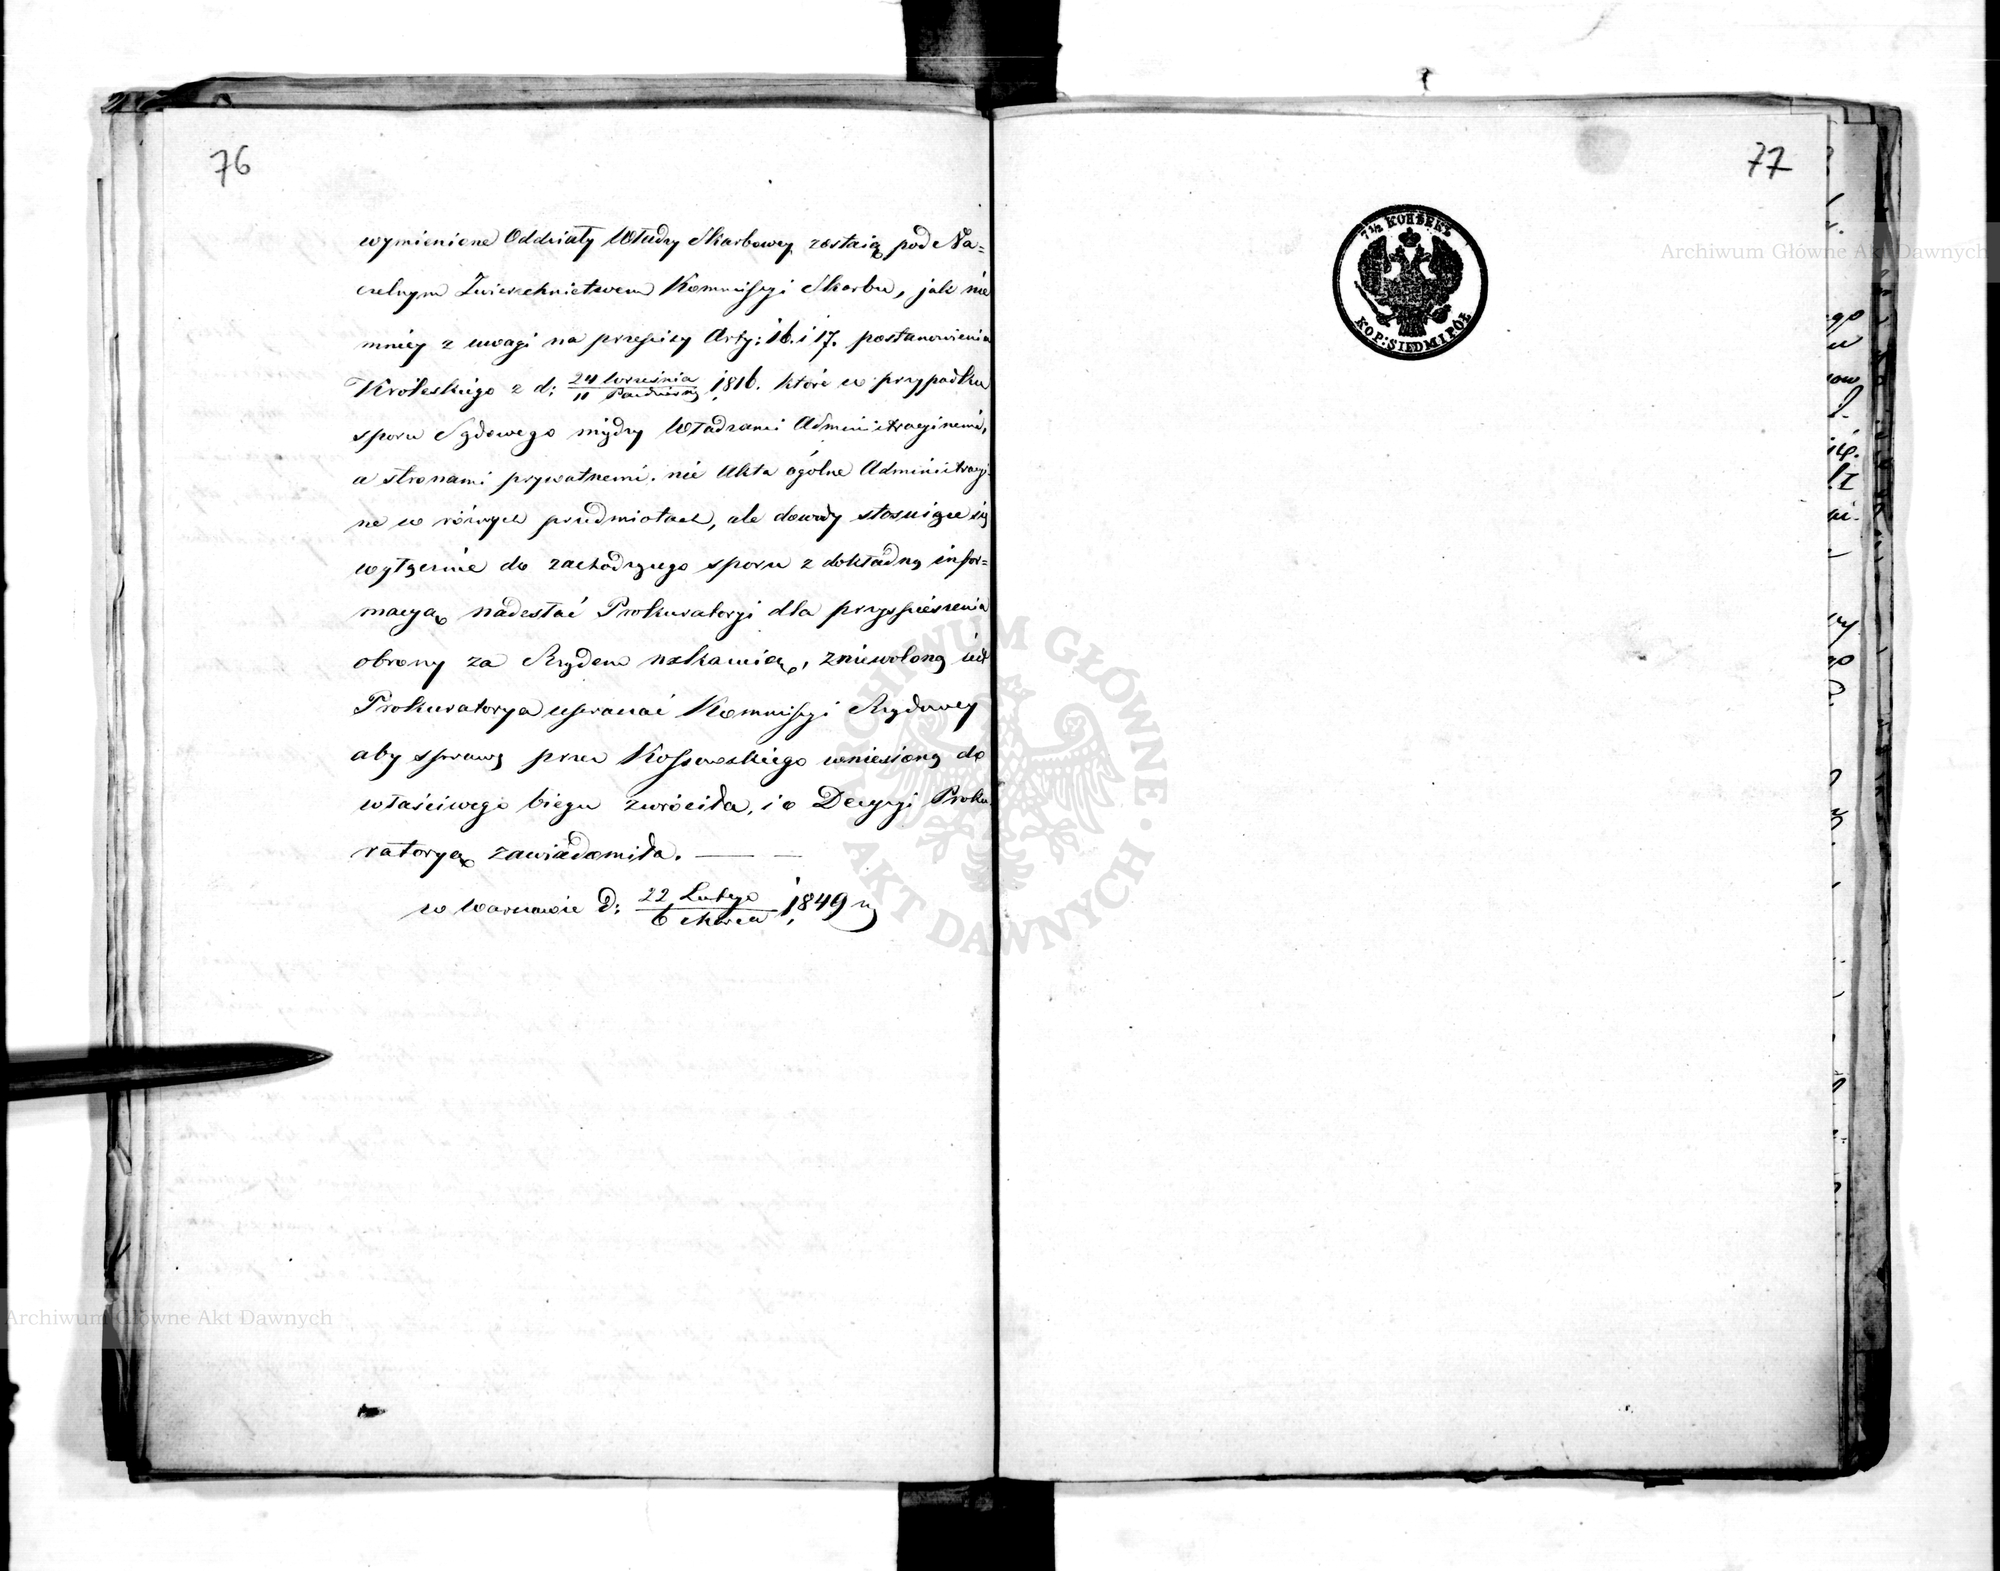 76
wymienione Oddziały Władzy Skarbowey zostaią pod Na=
czelnym Zwierzchnictwem Kommissyi Skarbu, jak nie
mniey z uwagi na przepisy Arty: 16. i 17. postanowienia
Króleskiego z d: 24 Września / 11 Paździer: 1816. które w przypadku
sporu Sądowego między Władzami Administracyinemi,
a stronami prywatnemi, nie Akta ogólne Administracyi-
ne w różnych przedmiotach, ale dowody stosuiące się
wyłącznie do zachodzącego sporu z dokładną infor=
macyą nadesłać Prokuratoryi dla przyspieszenia
obrony za Rządem nakazuią, zniewoloną iest
Prokuratorya upraszać Kommissyi Rządowey
aby sprawę przez Kossowskiego wniesioną do
właściwego biegu zwróciła, i o Decyzyi Proku
ratoryą zawiadomiła.
w Warszawie d: 22 Lutego / 6 Marca 1849 r
77
7 1/2 КОПѢЕКЪ
KOP: SIEDM I PÓŁ
Archiwum Główne Akt Dawnych
ARCHIWUM GŁÓWNE AKT DAWNYCH
Archiwum Główne Akt Dawnych